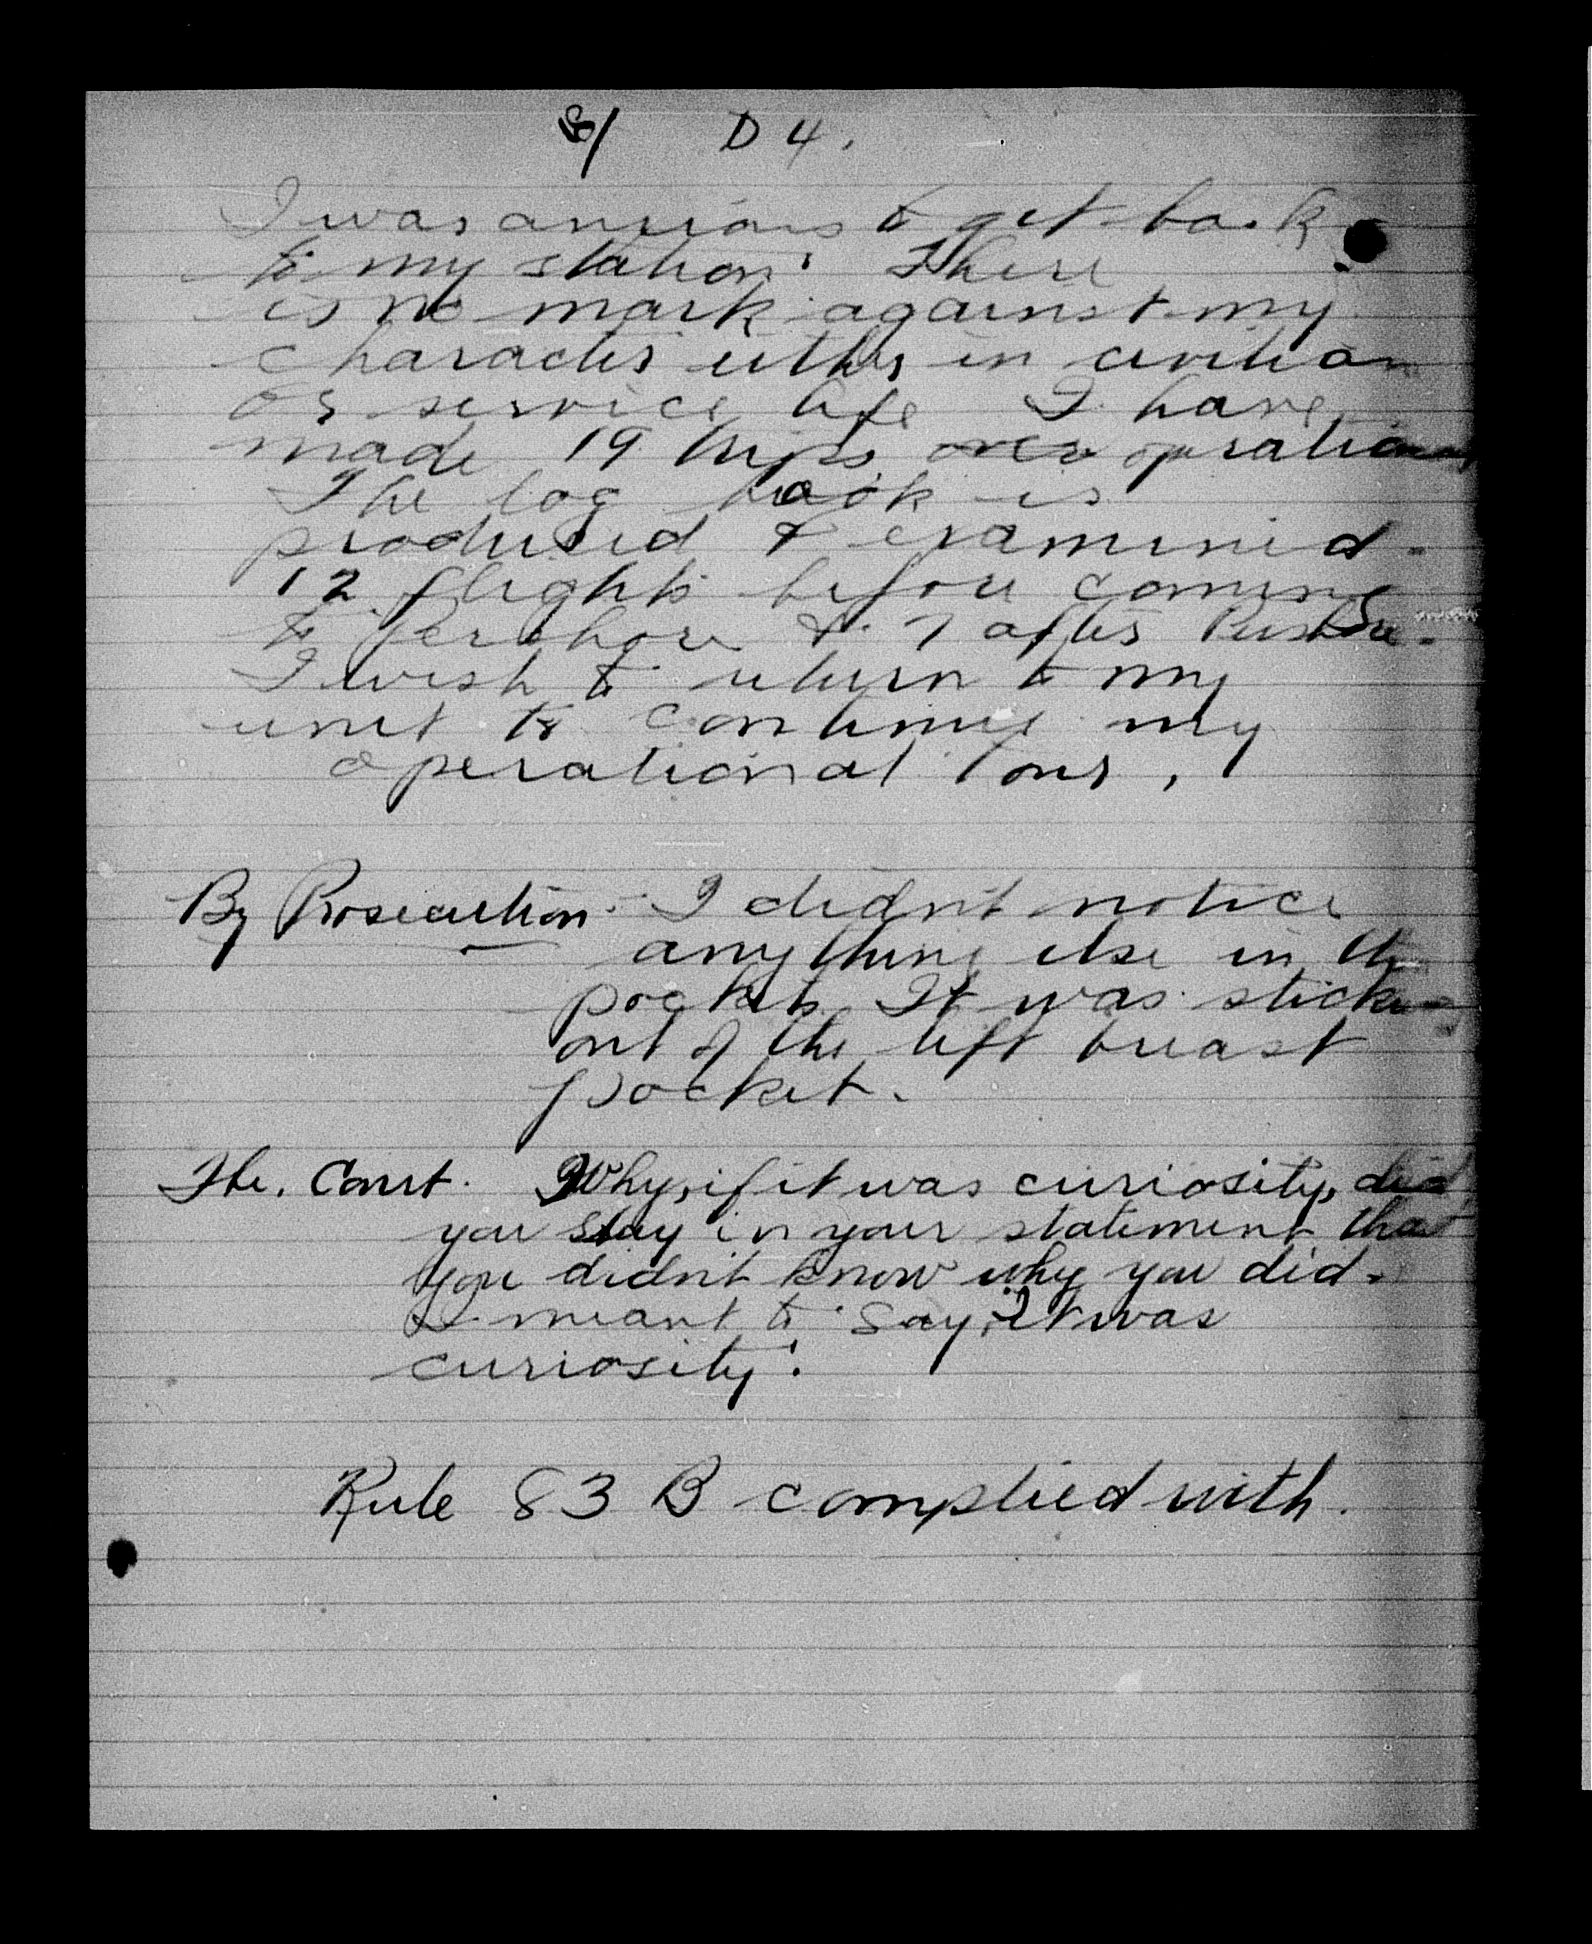 8/ D 4.
I was anxious to get back
to my station. There
is no mark against my
character either in civilian
or service life I have
made 19 trips over operations
The log book is
produced & examined.
12 flights before coming
to Pershore & 7 after Pershore.
I wish to return to my
unit to continue my
operational tour.
By Prosecution. I didn't notice
anything else in the
pockets It was sticking
out of the left breast
pocket.
The Court. Why, if it was curiosity, did
you say in your statement that
you didn't know why you did.
I meant to say, It was
curiosity.
Rule 83 B complied with.